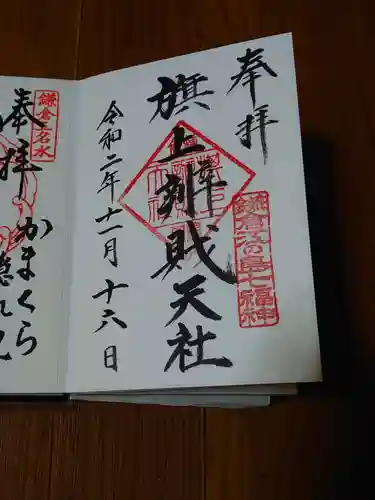 奉拝
旗上辨財天社
鎌倉江の島七福神
令和二年十一月十六日
鎌倉五名水
奉拝
かまくら